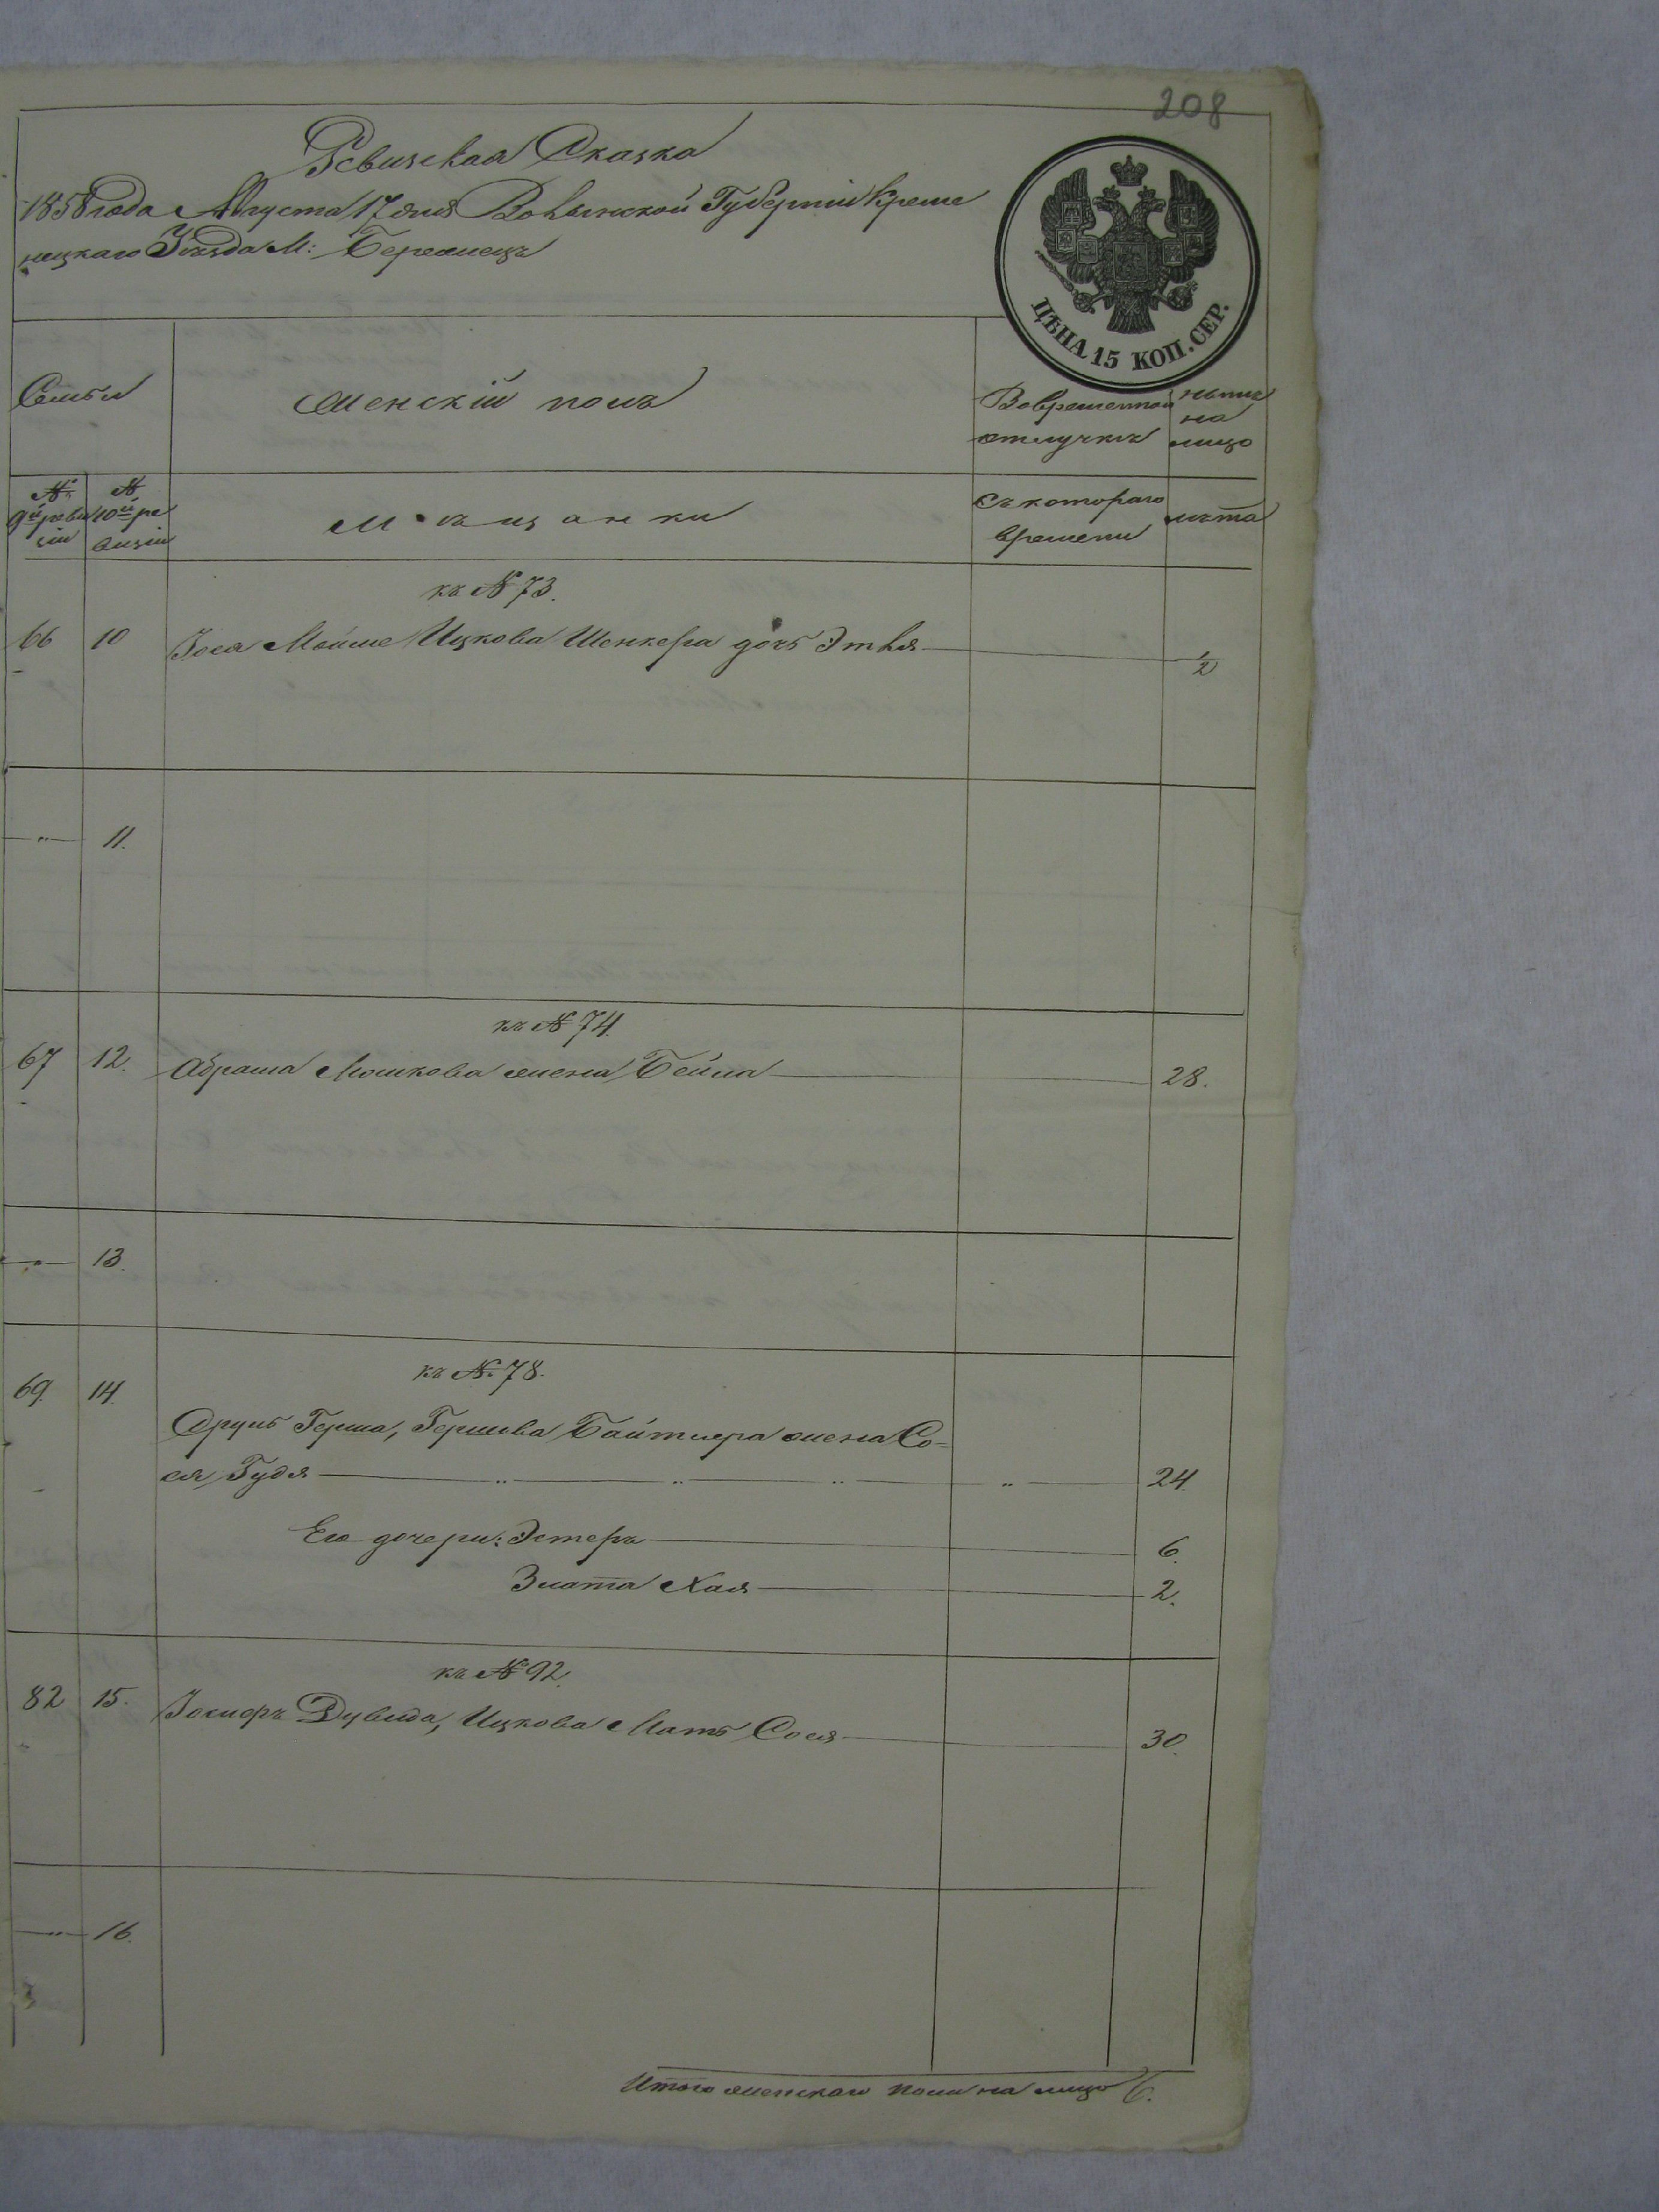 208
Ревизская Сказка
1858 года Августа 17 дня Волынской Губерніи Креме
нецкаго Уѣзда М: Бережецъ
ЦѢНА 15 КОП. СЕР.
Семьи
Женскій полъ
Во временной отлучкѣ
нынѣ на лицо
№ 9й ревизіи
№ 10й ревизіи
Мѣщанки
Съ котораго времени
лѣта
къ № 73.
66 10 Іося Мойше Ицкова Шенкера дочь Этля 1/2
" 11.
къ № 74.
67 12. Абрама Мошкова жена Бейла 28.
" 13.
къ № 78.
69. 14.
Сруль Герша, Гершева Байтлера жена Со=
ся Гудя " " " " 24
Его дочери: Эстеръ 6.
Злата Хая 2.
къ № 92.
82 15. Іосифъ Дувида, Ицкова Мать Сося 30.
" 16.
Итого женскаго пола на лицо 6.